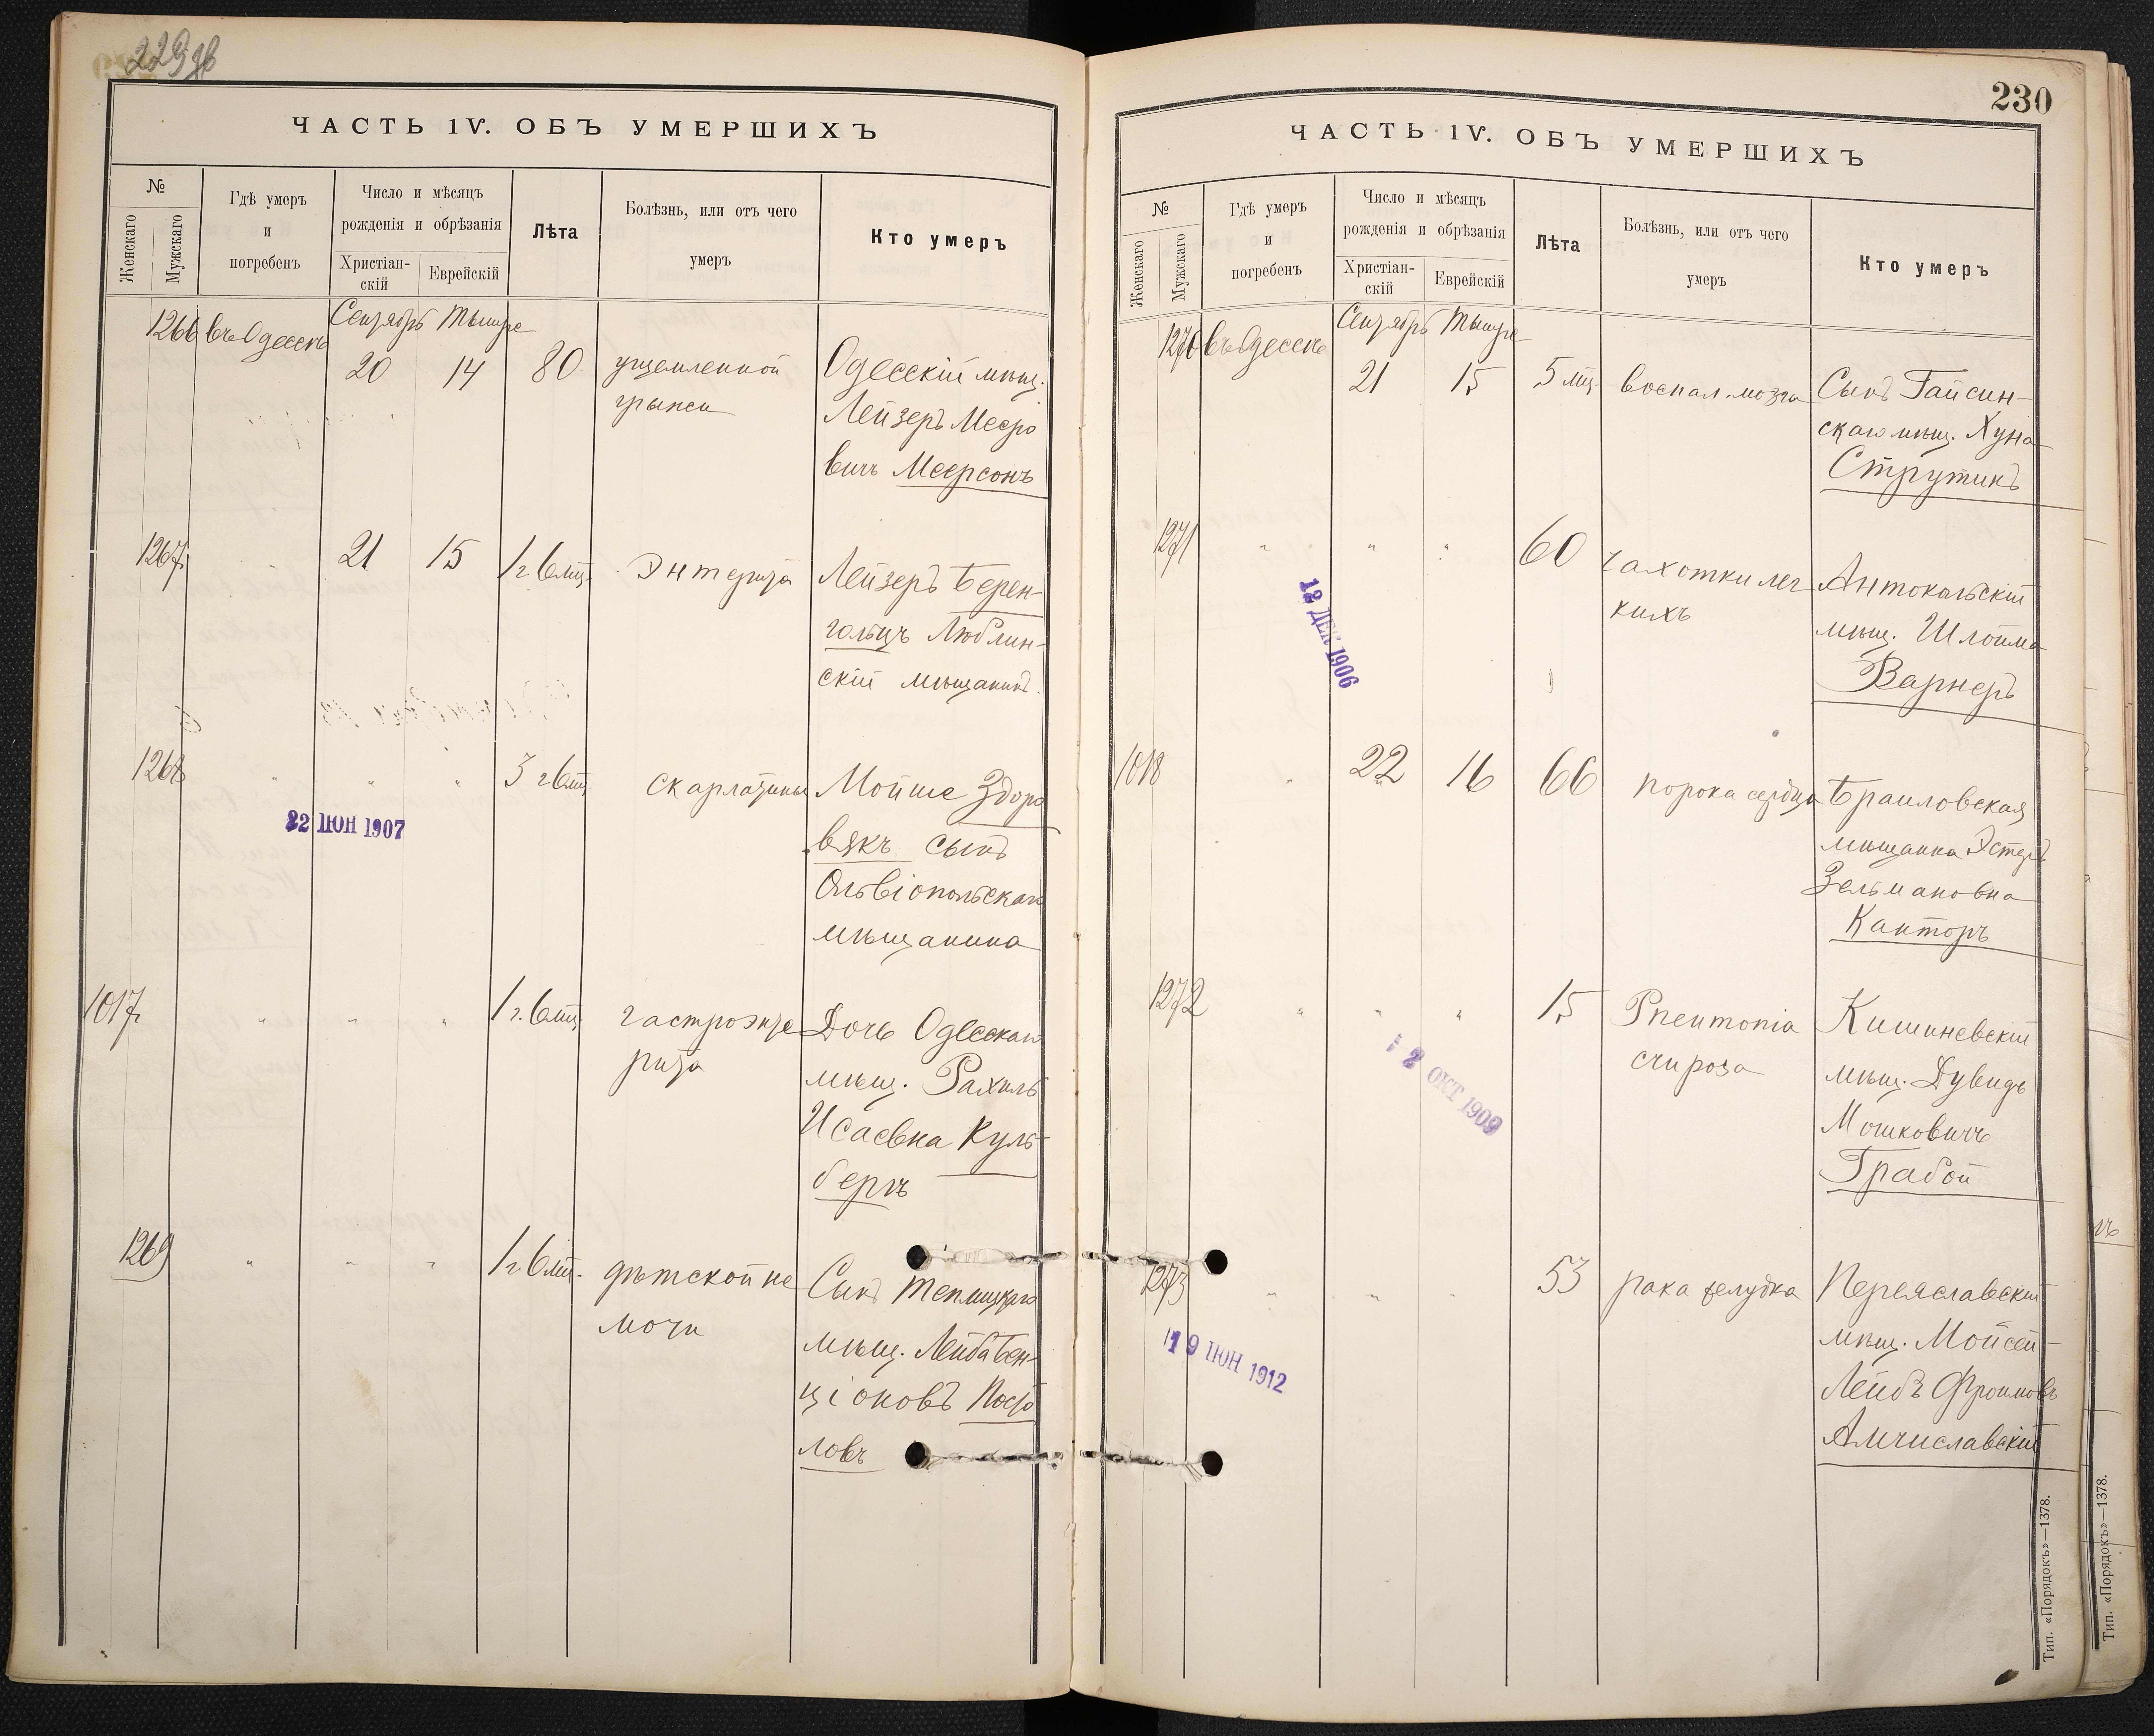 229 об
ЧАСТЬ IV. ОБЪ УМЕРШИХЪ
№
Женскаго
Мужскаго
Гдѣ умеръ
и
погребенъ
Число и мѣсяцъ
рожденія и обрѣзанія
Христіан-
скій
Еврейскій
Лѣта
Болѣзнь, или отъ чего
умеръ
Кто умеръ
1266 въ Одессѣ Сентябрь Тышре
20 14 80 ущемленной Одесскій мѣщ.
грыжи Лейзеръ Мееро
вичъ Меерсонъ
1267 " 21 15 1 г 6 мц. Энтерита Лейзеръ Берен-
гольцъ Люблин-
скій мѣщанинъ.
1268 " " " 3 г 6 мц скарлатины Мойше Здоро
22 ІЮН 1907
вякъ сынъ
Ольвіопольскаго
мѣщанина
1017 " " " 1 г. 6 мц. гастроэнте Дочь Одесскаго
рита мѣщ. Рахиль
Исаевна Куль-
бергъ
1269 " " " 1 г 6 мц. дѣтской не Сынъ Теплицкаго
мочи мѣщ. Лейба Бен-
ціоновъ
ловъ
230
ЧАСТЬ IV. ОБЪ УМЕРШИХЪ
№
Женскаго
Мужскаго
Гдѣ умеръ
и
погребенъ
Число и мѣсяцъ
рожденія и обрѣзанія
Христіан-
скій
Еврейскій
Лѣта
Болѣзнь, или отъ чего
умеръ
Кто умеръ
1270 въ Одессѣ Сентябрь Тышре
21 15 5 мц. воспал. мозга Сынъ Гайсин-
скаго мѣщ. Хуна
Струтинъ
1271 " " " " 60 чахотки лег Антокольскій
кихъ мѣщ. Шлойма
12 ДЕК 1906
Варнеръ
1018 " 22 16 66 порока сердца Браиловская
мѣщанка Эстеръ
Зельмановна
Канторъ
1272 " " " 15 Pneumonia Кишиневскій
мѣщ. Дувидъ
2 ОКТ 1909
Мошковичъ
Грабой
1273 " " " 53 рака желудка Переяславскій
мѣщ. Мойсей-
19 ІЮН 1912
Лейбъ Фроимовъ
Амчиславскій
Тип. «Порядокъ»—1378.
Тип. «Порядокъ»—1378.